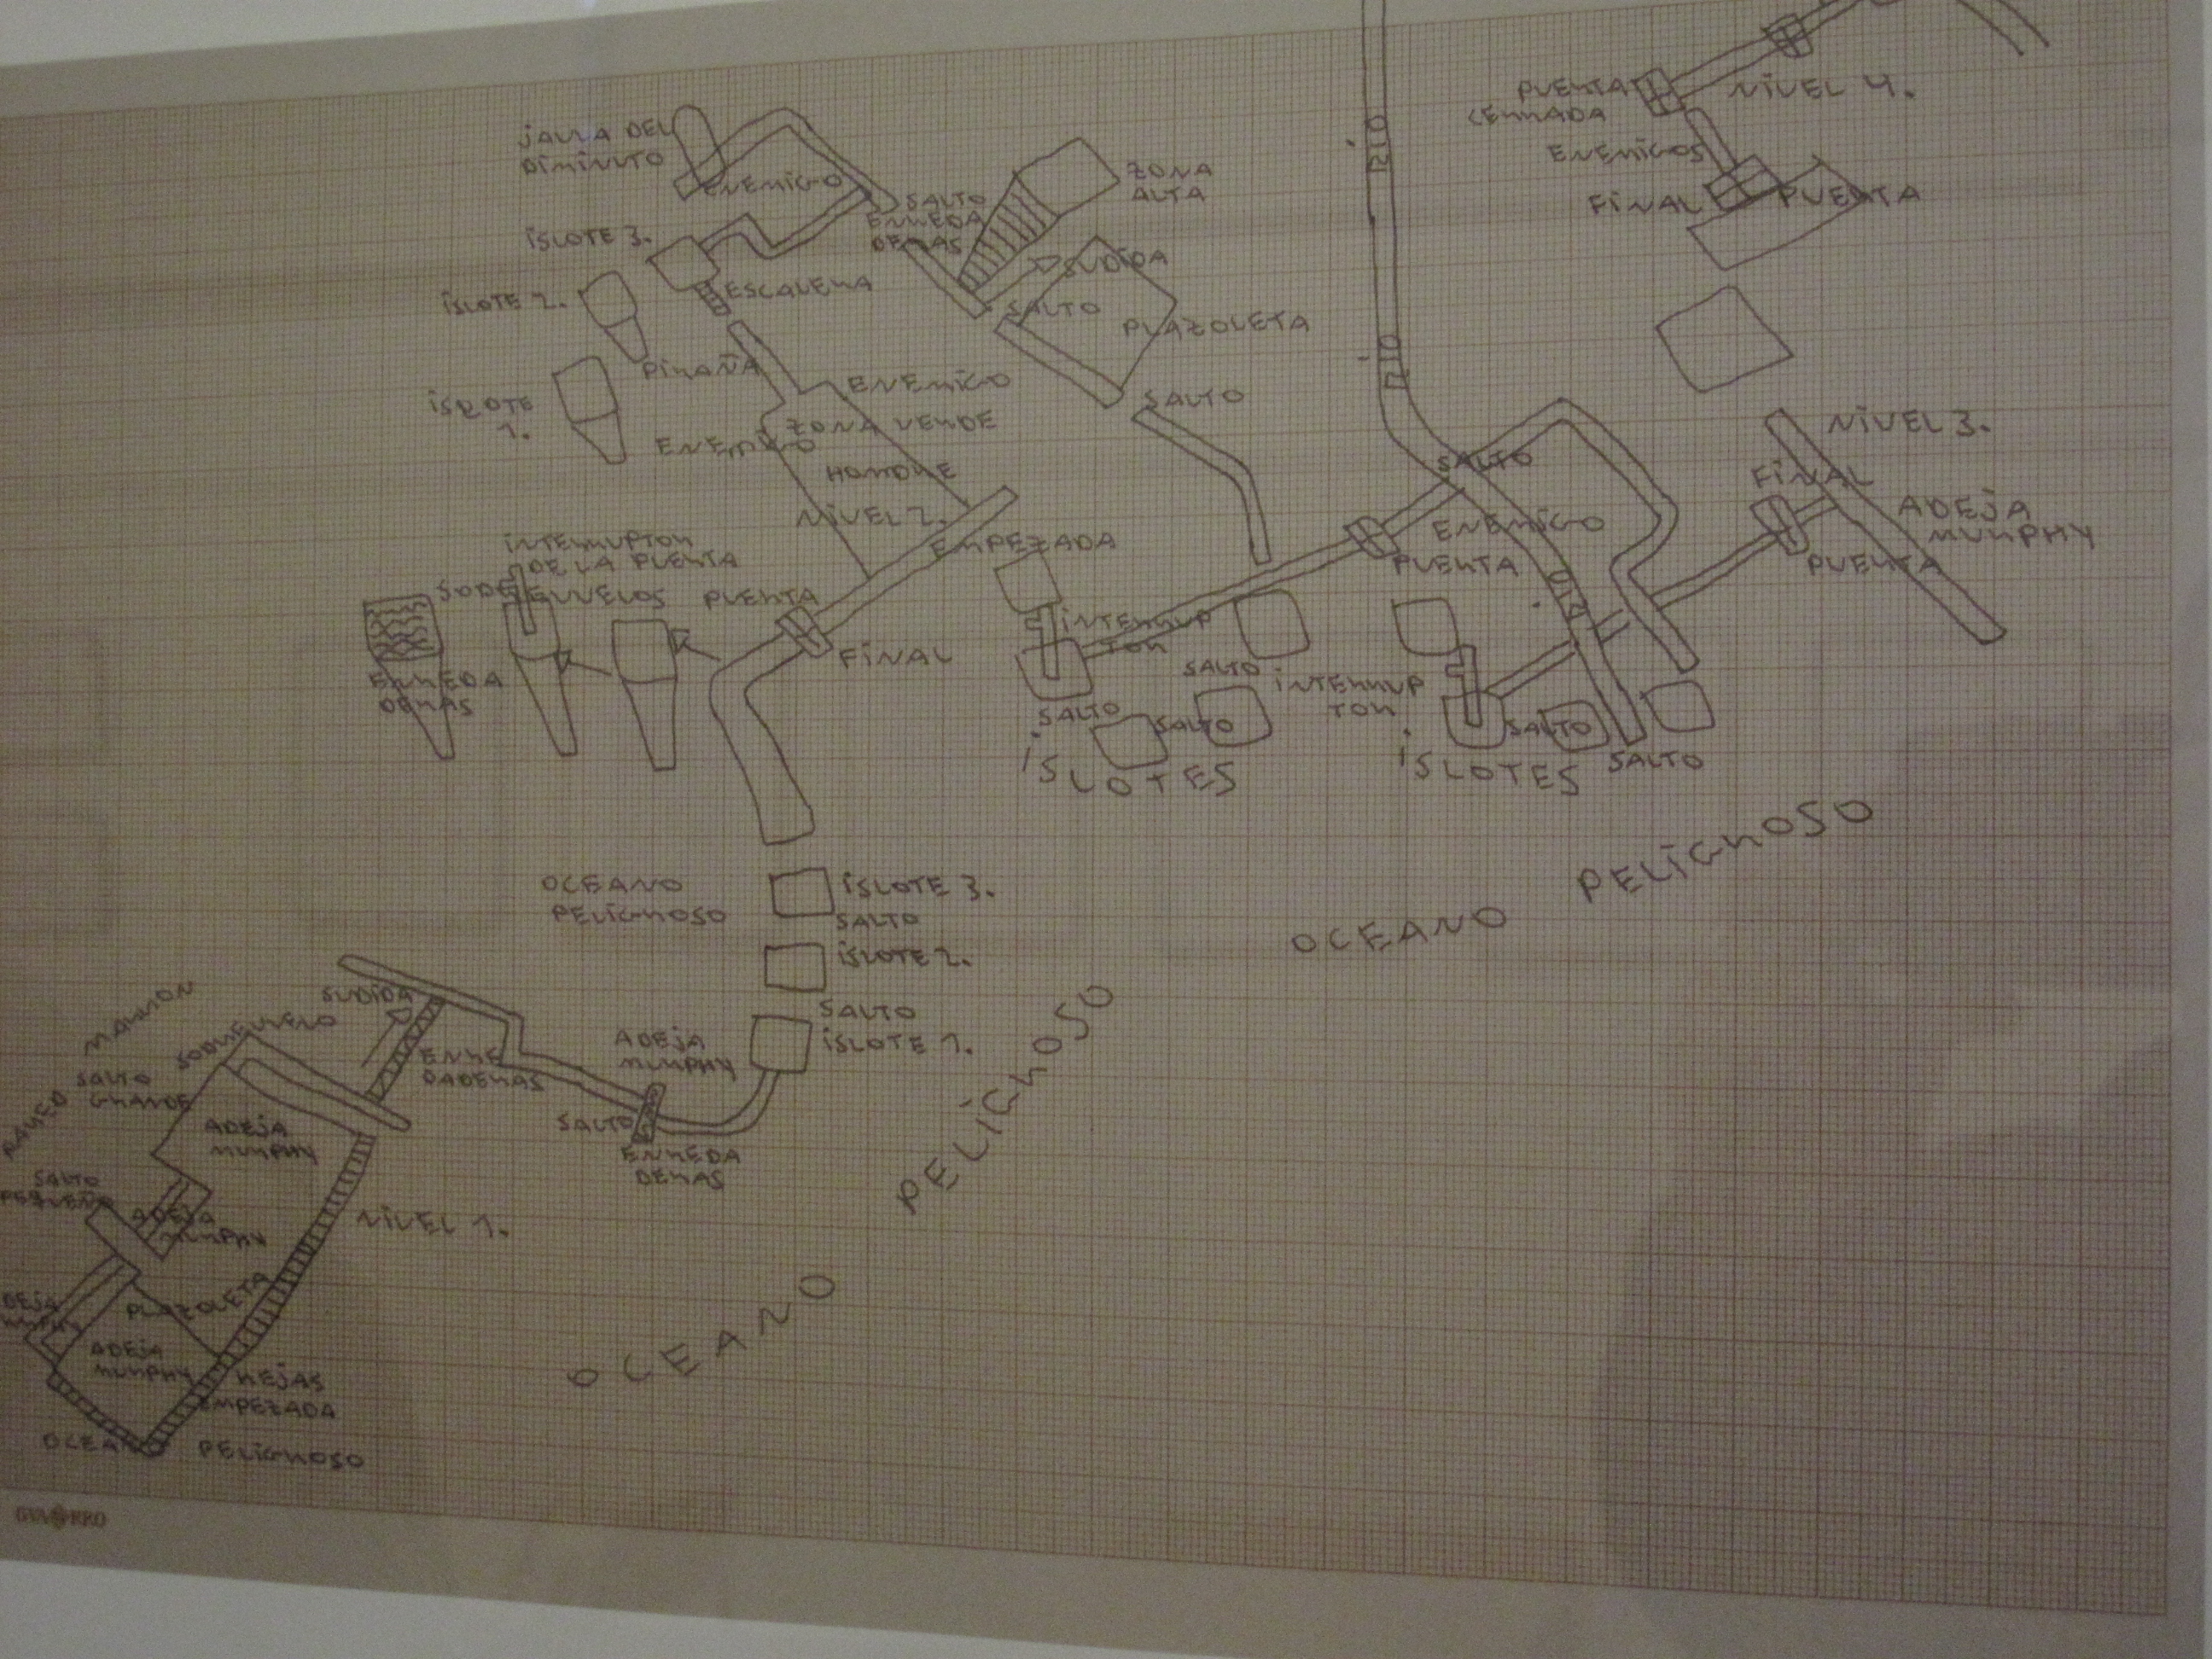 JAULA DEL
DIMINUTO
ENEMIGO
SALTO
ENREDA
DERAS
ZONA
ALTA
SUBIDA
SALTO
PLAZOLETA
SALTO
ISLOTE 3.
ESCALERA
ISLOTE 2.
PIRAÑA
ISLOTE
1.
ENEMIGO
ENEMIGO
ZONA VERDE
HOMBRE
NIVEL 2.
EMPEZADA
INTERRUPTOR
DE LA PUERTA
PUERTA
FINAL
ENREDA
DERAS
RIO
RIO
RIO
PUERTA
CERRADA
NIVEL 4.
ENEMIGOS
FINAL
PUERTA
NIVEL 3.
FINAL
ABEJA
MURPHY
PUERTA
SALTO
ENEMIGO
PUERTA
INTERRUP
TOR
SALTO
SALTO
SALTO
ISLOTES
INTERRUP
TOR
SALTO
SALTO
ISLOTES
OCEANO PELIGROSO
OCEANO
PELIGROSO
ISLOTE 3.
SALTO
ISLOTE 2.
SALTO
ISLOTE 1.
ABEJA
MURPHY
SALTO
ENREDA
DERAS
SUBIDA
ENRE
DADERAS
PARED MARRON
SALTO
GRANDE
ABEJA
MURPHY
SALTO
PEQUEÑO
ABEJA
MURPHY
NIVEL 1.
PLAZOLETA
ABEJA
MURPHY
REJAS
EMPEZADA
OCEANO PELIGROSO
OCEANO PELIGROSO
GUARRO